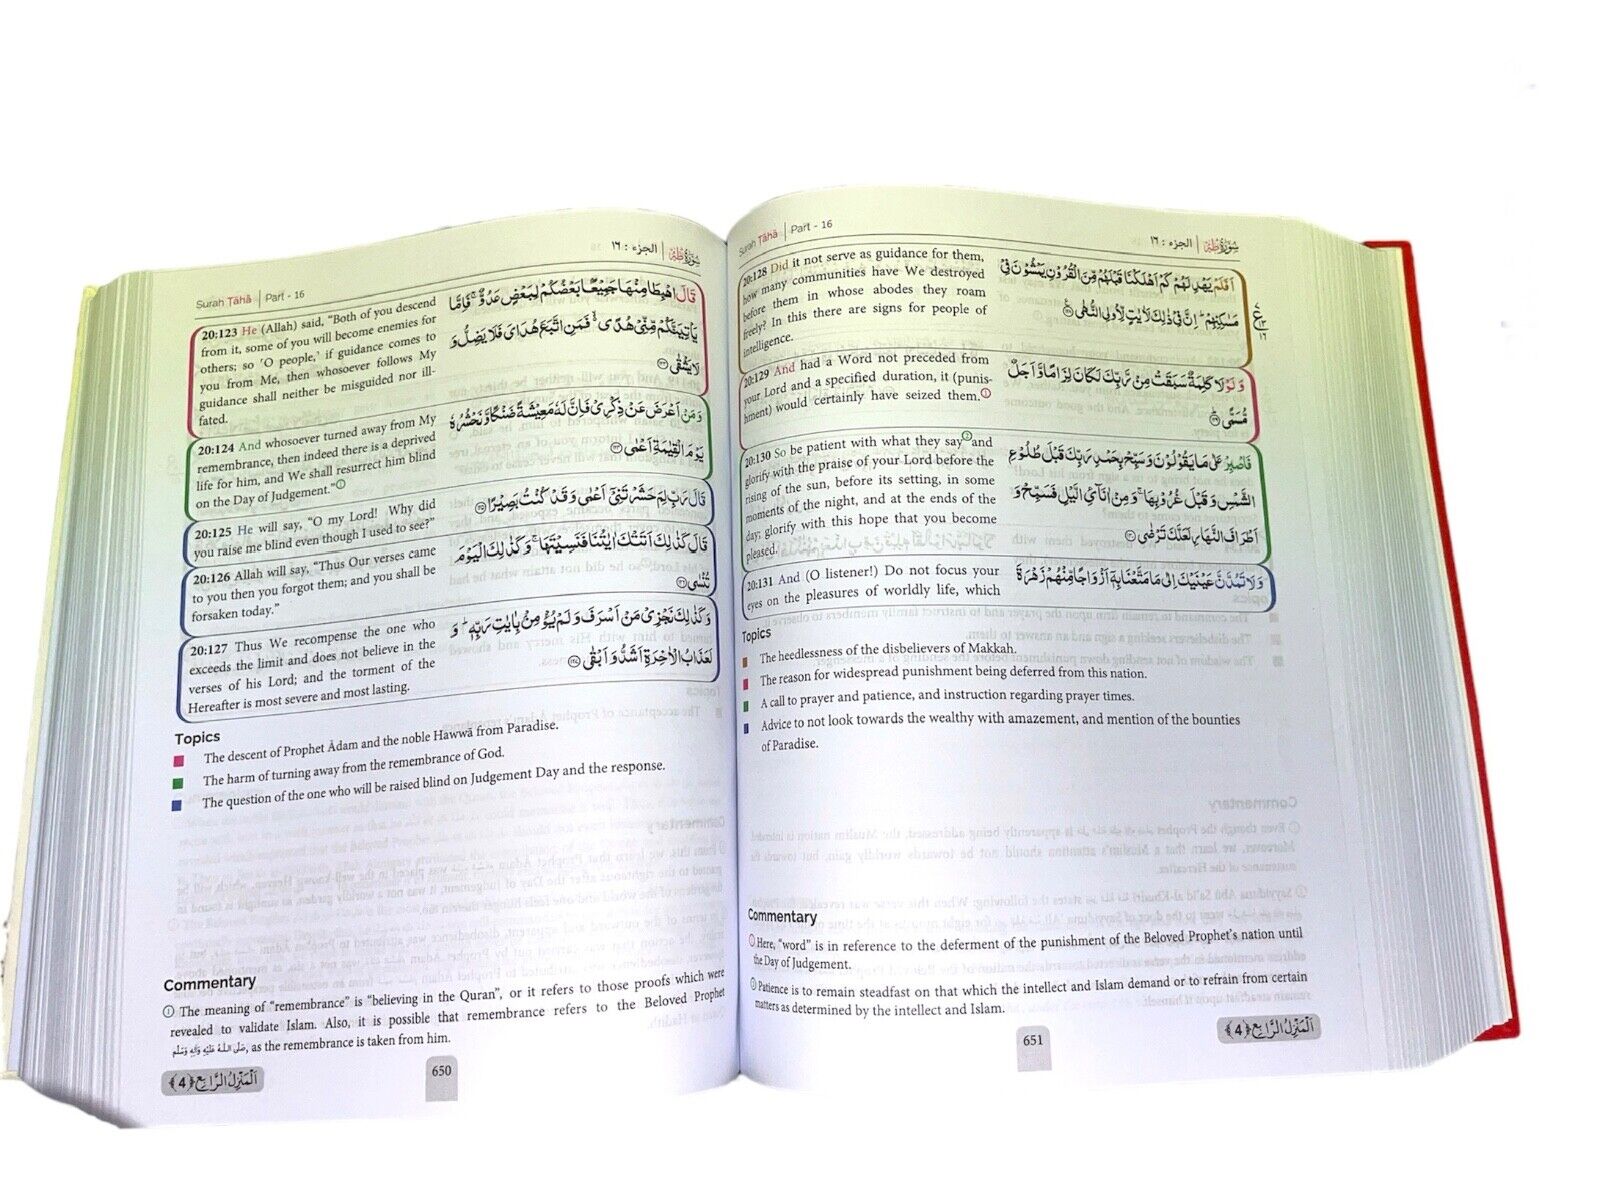 Surah Ṭāhā | Part - 16
الجزء : ١٦ | سُوْرَةُ طٰهٰ
20:123 He (Allah) said, “Both of you descend
from it, some of you will become enemies for
others; so ‘O people,’ if guidance comes to
you from Me, then whosoever follows My
guidance shall neither be misguided nor ill-
fated.
قَالَ اهْبِطَا مِنْهَا جَمِيْعًۢا بَعْضُكُمْ لِبَعْضٍ عَدُوٌّ ۚ فَاِمَّا
يَاْتِيَنَّكُمْ مِّنِّيْ هُدًى ۙ فَمَنِ اتَّبَعَ هُدَايَ فَلَا يَضِلُّ وَ
لَا يَشْقٰى ﴿۱۲۳﴾
20:124 And whosoever turned away from My
remembrance, then indeed there is a deprived
life for him, and We shall resurrect him blind
on the Day of Judgement.”①
وَ مَنْ اَعْرَضَ عَنْ ذِكْرِيْ فَاِنَّ لَهٗ مَعِيْشَةً ضَنْكًا وَّ نَحْشُرُهٗ
يَوْمَ الْقِيٰمَةِ اَعْمٰى ﴿۱۲۴﴾
20:125 He will say, “O my Lord! Why did
you raise me blind even though I used to see?”
قَالَ رَبِّ لِمَ حَشَرْتَنِيْۤ اَعْمٰى وَ قَدْ كُنْتُ بَصِيْرًا ﴿۱۲۵﴾
20:126 Allah will say, “Thus Our verses came
to you then you forgot them; and you shall be
forsaken today.”
قَالَ كَذٰلِكَ اَتَتْكَ اٰيٰتُنَا فَنَسِيْتَهَا ۚ وَ كَذٰلِكَ الْيَوْمَ
تُنْسٰى ﴿۱۲۶﴾
20:127 Thus We recompense the one who
exceeds the limit and does not believe in the
verses of his Lord; and the torment of the
Hereafter is most severe and most lasting.
وَ كَذٰلِكَ نَجْزِيْ مَنْ اَسْرَفَ وَ لَمْ يُؤْمِنْۢ بِاٰيٰتِ رَبِّهٖ ؕ وَ
لَعَذَابُ الْاٰخِرَةِ اَشَدُّ وَ اَبْقٰى ﴿۱۲۷﴾
Topics
The descent of Prophet Ādam and the noble Hawwā from Paradise.
The harm of turning away from the remembrance of God.
The question of the one who will be raised blind on Judgement Day and the response.
Commentary
① The meaning of “remembrance” is “believing in the Quran”, or it refers to those proofs which were
revealed to validate Islam. Also, it is possible that remembrance refers to the Beloved Prophet
صَلَّى اللّٰهُ عَلَيْهِ وَاٰلِهٖ وَسَلَّم, as the remembrance is taken from him.
اَلْمَنْزِلُ الرَّابِع ﴿4﴾
650
Surah Ṭāhā | Part - 16
الجزء : ١٦ | سُوْرَةُ طٰهٰ
20:128 Did it not serve as guidance for them,
how many communities have We destroyed
before them in whose abodes they roam
freely? In this there are signs for people of
intelligence.
اَفَلَمْ يَهْدِ لَهُمْ كَمْ اَهْلَكْنَا قَبْلَهُمْ مِّنَ الْقُرُوْنِ يَمْشُوْنَ فِيْ
مَسٰكِنِهِمْ ؕ اِنَّ فِيْ ذٰلِكَ لَاٰيٰتٍ لِّاُولِي النُّهٰى ﴿۱۲۸﴾
20:129 And had a Word not preceded from
your Lord and a specified duration, it (punis-
hment) would certainly have seized them.①
وَ لَوْ لَا كَلِمَةٌ سَبَقَتْ مِنْ رَّبِّكَ لَكَانَ لِزَامًا وَّ اَجَلٌ
مُّسَمًّى ﴿۱۲۹﴾
20:130 So be patient with what they say② and
glorify with the praise of your Lord before the
rising of the sun, before its setting, in some
moments of the night, and at the ends of the
day; glorify with this hope that you become
pleased.
فَاصْبِرْ عَلٰى مَا يَقُوْلُوْنَ وَ سَبِّحْ بِحَمْدِ رَبِّكَ قَبْلَ طُلُوْعِ
الشَّمْسِ وَ قَبْلَ غُرُوْبِهَا ۚ وَ مِنْ اٰنَآئِ الَّيْلِ فَسَبِّحْ وَ
اَطْرَافَ النَّهَارِ لَعَلَّكَ تَرْضٰى ﴿۱۳۰﴾
20:131 And (O listener!) Do not focus your
eyes on the pleasures of worldly life, which
وَ لَا تَمُدَّنَّ عَيْنَيْكَ اِلٰى مَا مَتَّعْنَا بِهٖۤ اَزْوَاجًا مِّنْهُمْ زَهْرَةَ
Topics
The heedlessness of the disbelievers of Makkah.
The reason for widespread punishment being deferred from this nation.
A call to prayer and patience, and instruction regarding prayer times.
Advice to not look towards the wealthy with amazement, and mention of the bounties
of Paradise.
Commentary
① Here, “word” is in reference to the deferment of the punishment of the Beloved Prophet’s nation until
the Day of Judgement.
② Patience is to remain steadfast on that which the intellect and Islam demand or to refrain from certain
matters as determined by the intellect and Islam.
651
اَلْمَنْزِلُ الرَّابِع ﴿4﴾